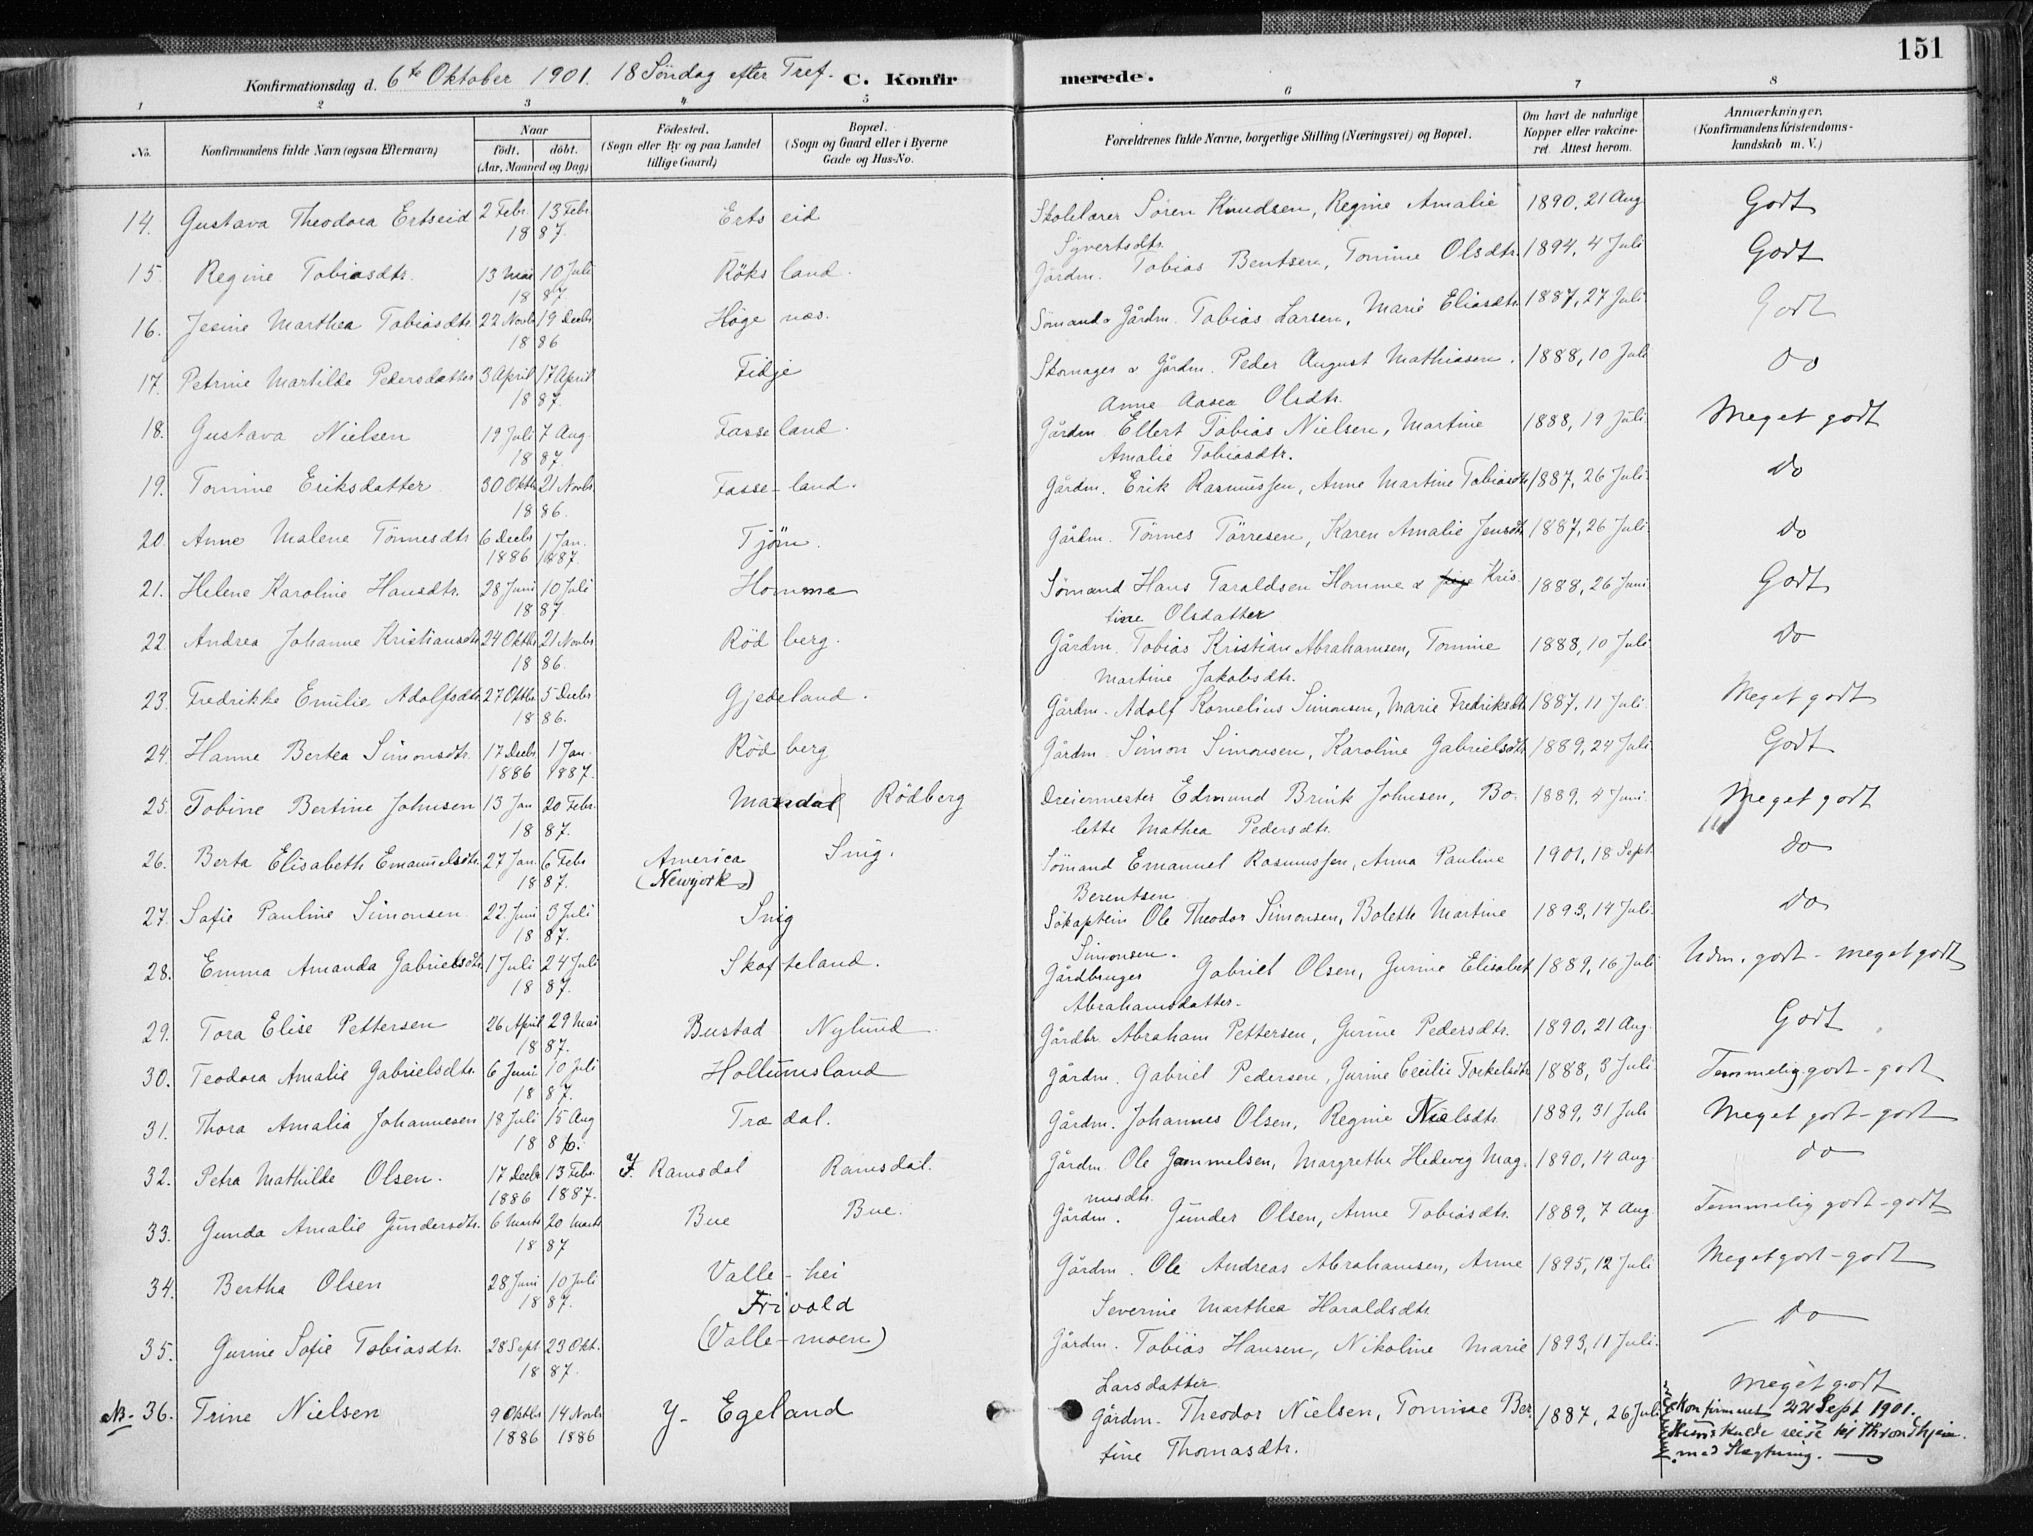 151
Konfirmationsdag d. 6te Oktober 1901. 18 Søndag efter Tref. C. Konfirmerede.
1 2 3 4 5 6 7 8
No. Konfirmandens fulde Navn (ogsaa Efternavn) Naar født, døbt. (Aar, Maaned og Dag) Fødested. (Sogn eller By og paa Landet tillige Gaard) Bopæl. (Sogn og Gaard eller i Byerne Gade og Hus-No. Forældrenes fulde Navne, borgerlige Stilling (Næringsvei) og Bopæl. Om havt de naturlige Kopper eller vakcineret. Attest herom. Anmærkninger. (Konfirmandens Kristendomskundskab m. V.)
14. Gustava Theodora Ertseid 2 Febr. 13 Febr. 1887. Ertseid Skolelærer Søren Knudsen, Regine Amalie 1890, 21 Aug Godt
Syvertsdtr.
15. Regine Tobiasdtr. 13 Mai 10 Juli 1887. Röksland. Gårdm. Tobias Bentsen, Tomine Olsdtr. 1894, 4 Juli Godt
16. Jesine Marthea Tobiasdtr. 22 Novbr 19 Decbr 1886 Høgenæs. Sømand & Gårdm. Tobias Larsen, Marie Eliasdtr. 1887, 27 Juli Godt
17. Petrine Martilde Pedersdatter 3 April 17 April 1887. Fidje Skomager & Gårdm. Peder August Mathiasen. 1888, 10 Juli do
Anne Aasea Olsdtr.
18. Gustava Nielsen 19 Juli 7 Aug. 1887. Fasseland. Gårdm. Ellert Tobias Nielsen, Martine 1888, 19 Juli. Meget godt
Amalie Tobiasdtr.
19. Tomine Eriksdatter 30 Oktbr 21 Novbr. 1886. Fasse-land. Gårdm. Erik Rasmussen, Anne Martine Tobiasdtr 1887, 26 Juli. do
20. Anne Malene Tönnesdtr 6 Decbr 1886 1 Jan. 1887. Tjöm. Gårdm. Tönnes Törresen, Karen Amalie Jensdtr 1887, 26 Juli. do
21. Helene Karoline Hansdtr. 28 Juni 10 Juli 1887 Homme Sömand Hans Taraldsen Homme & pige Kris- 1888, 26 Juni. Godt
tine Olsdatter
22. Andrea Johanne Kristiansdtr 24 Oktbr 21 Novbr 1886. Rödberg. Gårdm. Tobias Kristian Abrahamsen, Tomine 1888, 10 Juli do
Martine Jakobsdtr.
23. Fredrikke Emilie Adolfsdtr 27 Oktbr 5 Decbr 1886. Gjedeland. Gårdm. Adolf Kornelius Simonsen, Marie Fredriksdtr 1887, 11 Juli. Meget godt
24. Hanne Bertea Simonsdtr. 17 Decbr. 1886 1 Jan. 1887. Rödberg Gårdm. Simon Simonsen, Karoline Gabrielsdtr 1889, 24 Juli Godt
25. Tobine Bertine Johnsen 13 Jan 20 Febr. 1887. Mandal Rödberg Dreiermester Edmund Brink Johnsen, Bo- 1889, 4 Juni. Meget godt
lette Mathea Pedersdtr.
26. Berta Elisabeth Emanuelsdtr. 27 Jan. 6 Febr 1887. America (Newyork) Snig. Sömand Emanuel Rasmussen, Anna Pauline 1901, 18 Sept. do
Berentsen
27. Sofie Pauline Simonsen 22 Juni 3 Juli 1887. Snig Sökaptein Ole Theodor Simonsen, Bolette Martine 1893, 14 Juli. do
Simonsen.
28. Emma Amanda Gabrielsdtr. 1 Juli 24 Juli 1887. Skofteland. Gårdbruger Gabriel Olsen, Gurine Elisabet 1889, 16 Juli Udm. godt - meget godt
Abrahamsdatter.
29. Tora Elise Pettersen 26 April 29 Mai 1887. Bustad Nylund Gårdbr. Abraham Pettersen, Gurine Pedersdtr. 1890, 21 Aug. Godt
30. Teodora Amalie Gabrielsdtr. 6 Juni 10 Juli 1887. Hollumsland Gårdm. Gabriel Pedersen, Jurine Cecilie Torkelsdtr 1888, 3 Juli. Temmelig godt - godt
31. Thora Amalia Johannesen 18 Juli 15 Aug 1886. Trædal. Gårdm. Johannes Olsen, Regine Nielsdtr 1889, 31 Juli Meget godt - godt
32. Petra Mathilde Olsen. 17 Decbr 1886 13 Febr. 1887. Y. Ramsdal Ramsdal. Gårdm. Ole Gammelsen, Margrethe Hedevig Mag- 1890, 14 Aug. do
nusdtr.
33. Gunda Amalie Gundersdtr. 6 Marts 20 Marts 1887 Bue Bue. Gårdm. Gunder Olsen, Anne Tobiasdtr. 1889, 7 Aug. Temmelig godt - godt
34. Bertha Olsen 28 Juni 10 Juli 1887. Valle-hei Gårdm. Ole Andreas Abrahamsen, Anne 1895, 12 Juli Meget godt - godt
Severine Marthea Haraldsdtr
35. Gurine Sofie Tobiasdtr. 28 Sept 23 Okt. 1887. Frivold (Valle-moen) Gårdm. Tobias Hansen, Nikoline Marie 1893, 11 Juli. do
Larsdatter
NB. 36. Trine Nielsen 9 Oktbr 1886 14 Novbr 1886 Y- Egeland Gårdm. Theodor Nielsen, Tomine Ber- 1887, 26 Juli meget godt
tine Thomasdtr.
Konfirmeret 22 Sept 1901.
skulde reise til Throndhjem
med Slægtning.